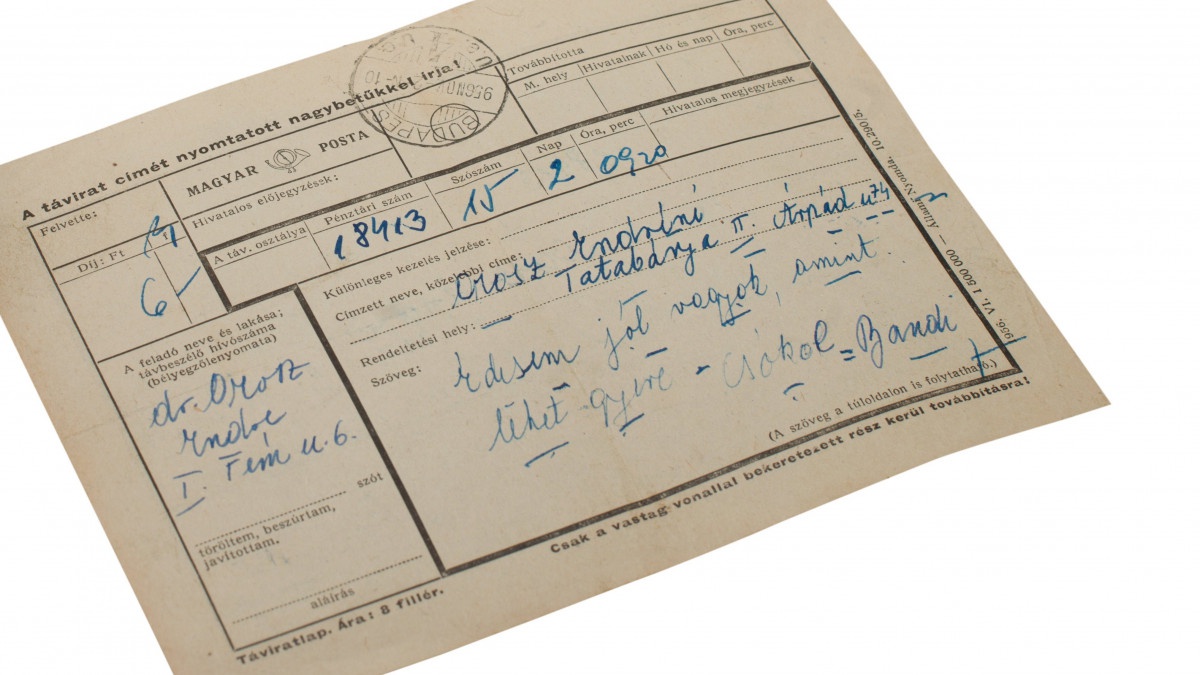 A távirat címét nyomtatott nagybetűkkel írja!
Továbbította
M. hely Hivatalnak Hó és nap Óra, perc
Felvette:
MAGYAR POSTA
Hivatalos előjegyzések:
Díj: Ft
6-
A táv. osztálya
Pénztári szám
18413
Szószám
15
Nap
2
Óra, perc
0920
Hivatalos megjegyzések
BUDAPEST
956 NOV
Különleges kezelés jelzése:
Címzett neve, közelebbi címe:
Orosz Endréné
Tatabánya II. Árpád u 74
Rendeltetési hely:
Szöveg:
Édesem jól vagyok, amint
lehet gyere - Csókol = Bandi
(A szöveg a túloldalon is folytatható.)
Csak a vastag vonallal bekeretezett rész kerül továbbításra!
A feladó neve és lakása;
távbeszélő hívószáma
(bélyegzőlenyomata)
dr. Orosz
Endre
I. Fém u. 6.
szót
töröltem, beszúrtam,
javítottam.
aláírás
Táviratlap. Ára: 8 fillér.
956. VI. 1 500 000 — Állami Nyomda. 10.290/5.